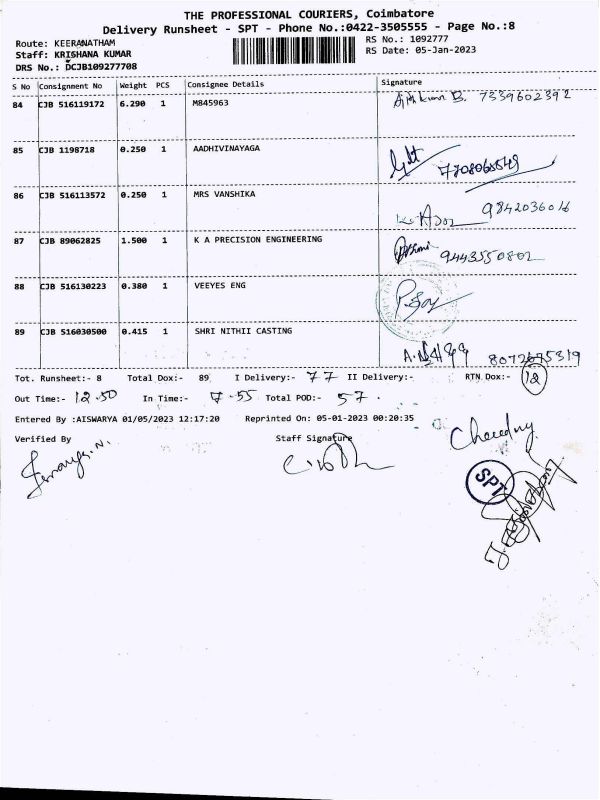 THE PROFESSIONAL COURIERS, Coimbatore
Delivery Runsheet - SPT - Phone No.:0422-3505555 - Page No.:8
Route: KEERANATHAM
RS No.: 1092777
Staff: KRISHANA KUMAR
RS Date: 05-Jan-2023
DRS No.: DCJB109277708
S No Consignment No Weight PCS Consignee Details Signature
84 CJB 516119172 6.290 1 M845963 7339602392
85 CJB 1198718 0.250 1 AADHIVINAYAGA 7708065549
86 CJB 516113572 0.250 1 MRS VANSHIKA 9842036016
87 CJB 89062825 1.500 1 K A PRECISION ENGINEERING 9443550802
88 CJB 516130223 0.380 1 VEEYES ENG
89 CJB 516030500 0.415 1 SHRI NITHII CASTING
Tot. Runsheet:- 8 Total Dox:- 89 I Delivery:- 77 II Delivery:- RTN Dox:- 12
Out Time:- 12.50 In Time:- 7.55 Total POD:- 57.
Entered By :AISWARYA 01/05/2023 12:17:20 Reprinted On: 05-01-2023 00:20:35
Verified By Staff Signature
SPT